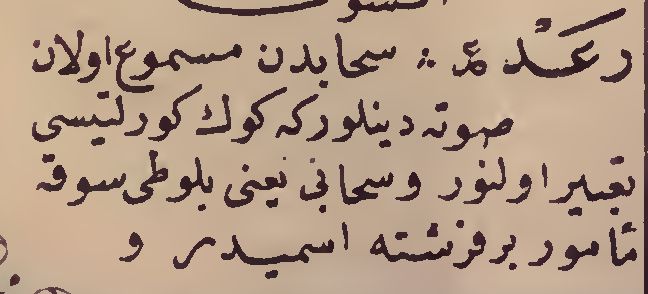 رعد ع : سحابدن مسموع اولان
صوته دينلور كه كوك كورلتيسى
تعبير اولنور و سحابى يعنى بلوطى سوقه
مأمور بر فرشته اسميدر و